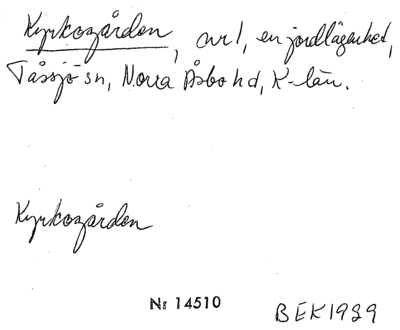 Kyrkogården, nr 1, en jordlägenhet,
Tåssjö sn, Norra Åsbo hd, K-län.
Kyrkogården
Nr 14510
BEK 1929